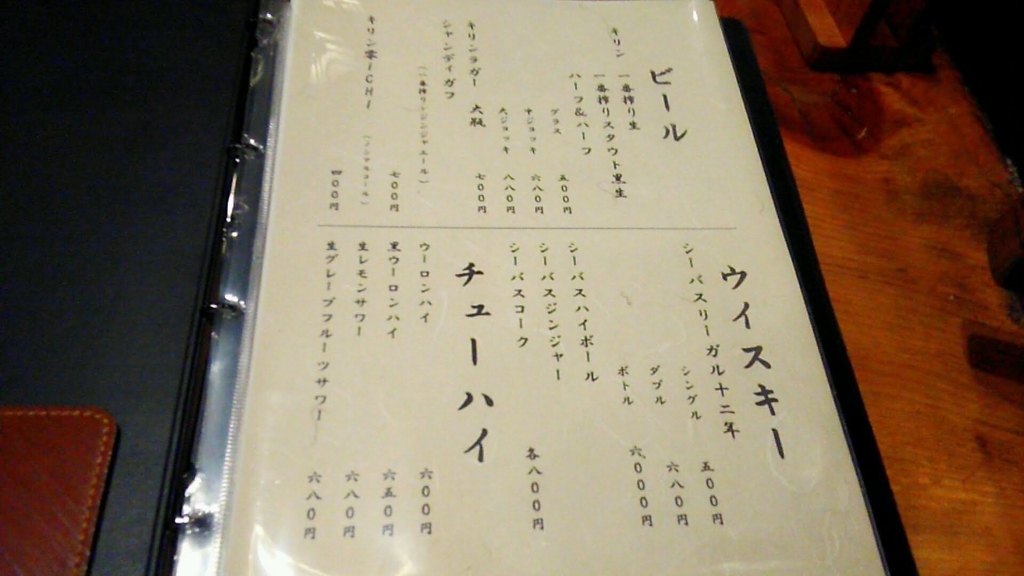 ビール
キリン 一番搾り生
一番搾りスタウト黒生
ハーフ&ハーフ
グラス 五〇〇円
中ジョッキ 六八〇円
大ジョッキ 八八〇円
キリンラガー 大瓶 七〇〇円
シャンディガフ
(一番搾り+ジンジャエール) 七〇〇円
キリン零ICHI (ノンアルコール) 四〇〇円
ウイスキー
シーバスリーガル十二年
シングル 五〇〇円
ダブル 六八〇円
ボトル 六、〇〇〇円
シーバスハイボール
シーバスジンジャー
シーバスコーク 各八〇〇円
チューハイ
ウーロンハイ 六〇〇円
黒ウーロンハイ 六五〇円
生レモンサワー 六八〇円
生グレープフルーツサワー 六八〇円